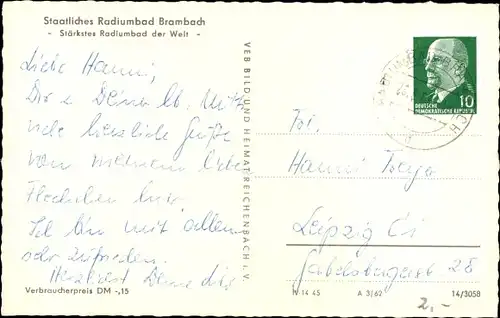 Staatliches Radiumbad Brambach
- Stärkstes Radiumbad der Welt -
Liebe Hanni,
Dir u. Deiner lb. Mutti
viele herzliche Grüße
von meinem
Ich bin mit allem
sehr zufrieden.
Herzlichst Deine
Verbraucherpreis DM -,15
VEB BILD UND HEIMAT REICHENBACH i. V.
10
DEUTSCHE
DEMOKRATISCHE REPUBLIK
Frl.
Hanni
Leipzig C1
Gabelsbergerst. 28
IV 14 45 A 3/62 14/3058
2,-